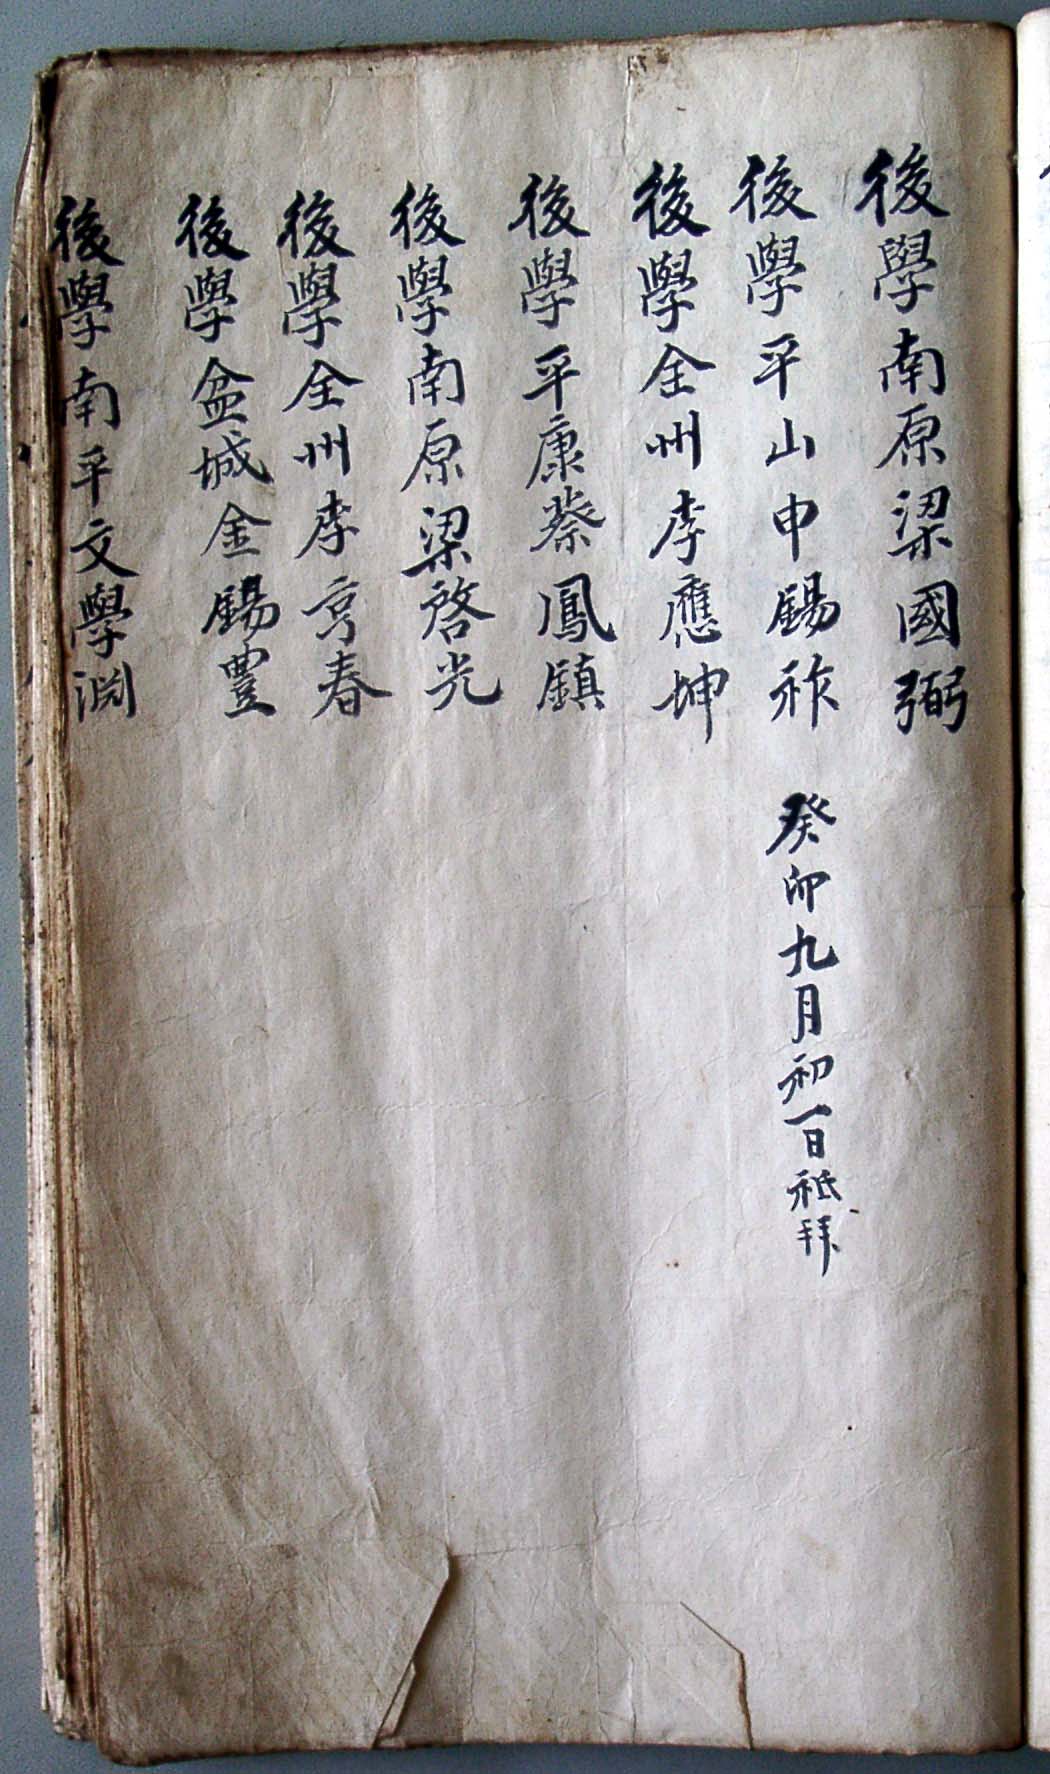 後學南原梁國弼
後學平山申錫祚 癸卯九月初一日祗拜
後學全州李應坤
後學平康蔡鳳鎮
後學南原梁啓光
後學全州李亨春
後學盆城金錫豊
後學南平文學渊